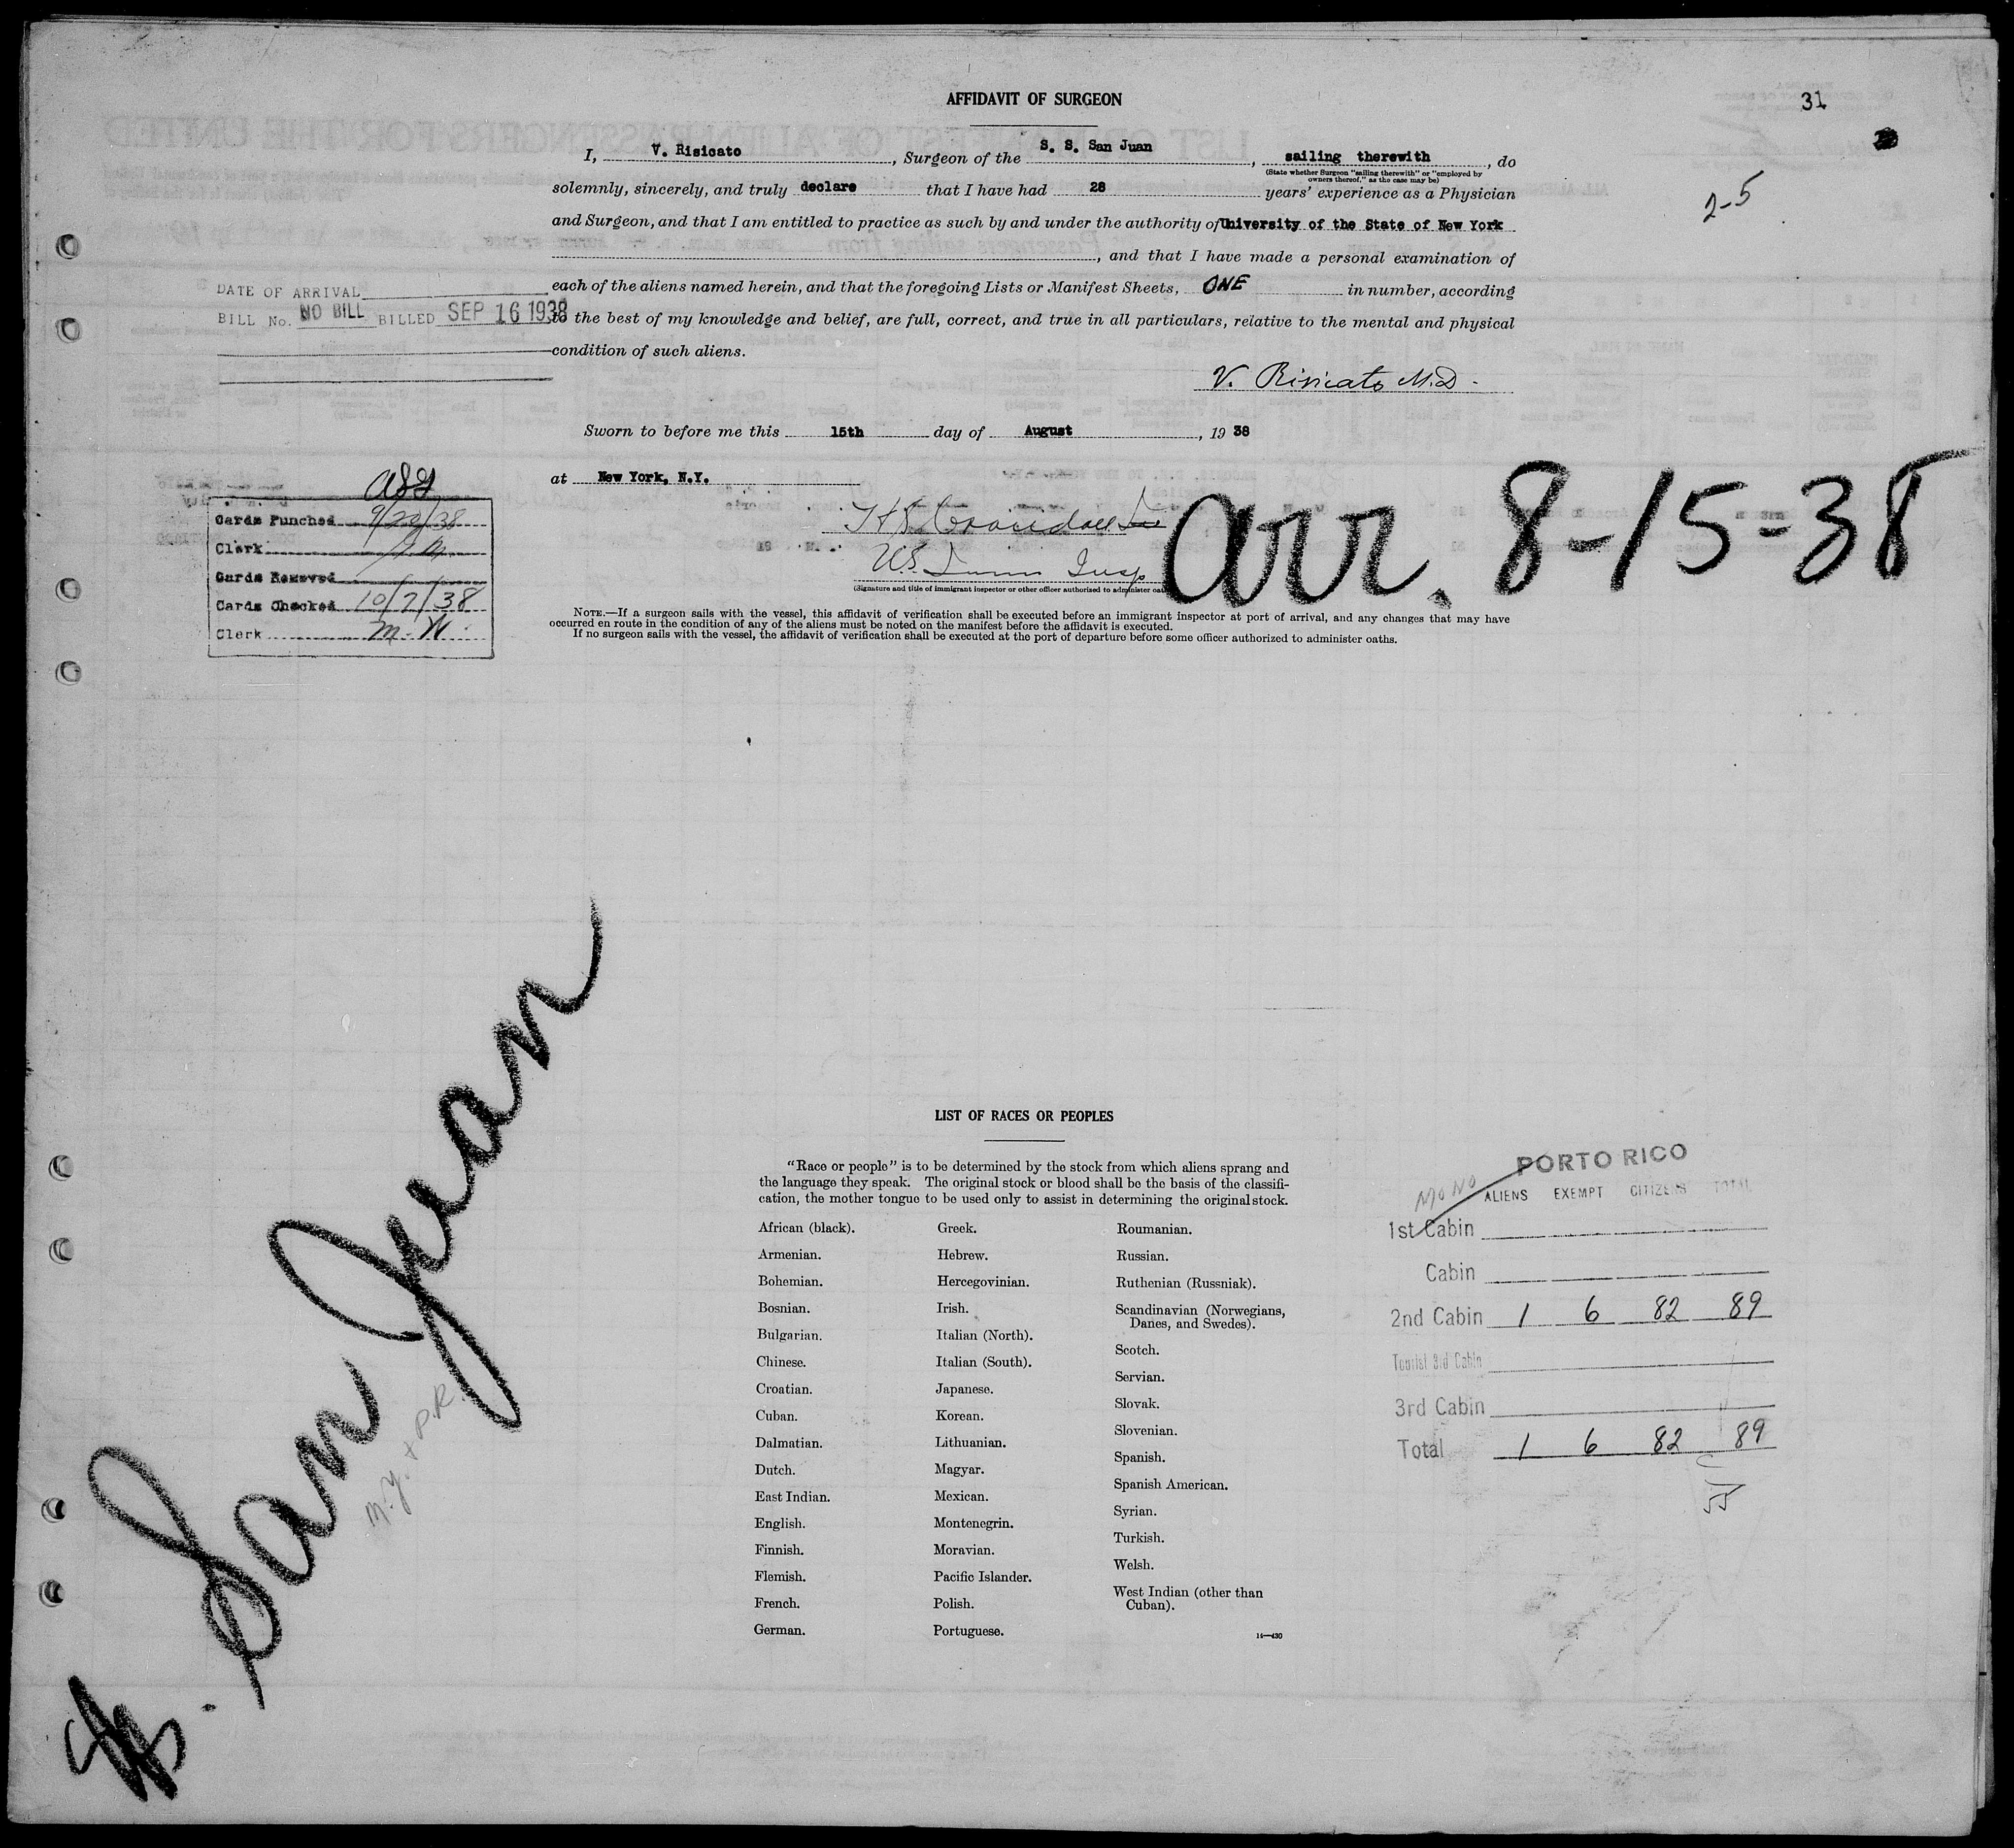 AFFIDAVIT OF SURGEON
31
2-5
I, V. Risicato, Surgeon of the S. S. San Juan, sailing therewith, do
(State whether Surgeon "sailing therewith" or "employed by
owners thereof," as the case may be)
solemnly, sincerely, and truly declare that I have had 28 years' experience as a Physician
and Surgeon, and that I am entitled to practice as such by and under the authority of University of the State of New York
, and that I have made a personal examination of
each of the aliens named herein, and that the foregoing Lists or Manifest Sheets, ONE in number, according
to the best of my knowledge and belief, are full, correct, and true in all particulars, relative to the mental and physical
condition of such aliens.
DATE OF ARRIVAL
BILL No. NO BILL BILLED SEP 16 1938
V. Risicato M.D.
Sworn to before me this 15th day of August, 19 38
at New York, N.Y.
U.S. Insp
(Signature and title of immigrant inspector or other officer authorized to administer
arr. 8-15-38
Cards Punched 9/20/38
Clerk
Cards Removed
Cards Checked 10/7/38
Clerk M. W.
NOTE.—If a surgeon sails with the vessel, this affidavit of verification shall be executed before an immigrant inspector at port of arrival, and any changes that may have
occurred en route in the condition of any of the aliens must be noted on the manifest before the affidavit is executed.
If no surgeon sails with the vessel, the affidavit of verification shall be executed at the port of departure before some officer authorized to administer oaths.
San Juan
N.Y. & P.R.
LIST OF RACES OR PEOPLES
"Race or people" is to be determined by the stock from which aliens sprang and
the language they speak. The original stock or blood shall be the basis of the classifi-
cation, the mother tongue to be used only to assist in determining the original stock.
African (black).
Armenian.
Bohemian.
Bosnian.
Bulgarian.
Chinese.
Croatian.
Cuban.
Dalmatian.
Dutch.
East Indian.
English.
Finnish.
Flemish.
French.
German.
Greek.
Hebrew.
Hercegovinian.
Irish.
Italian (North).
Italian (South).
Japanese.
Korean.
Lithuanian.
Magyar.
Mexican.
Montenegrin.
Moravian.
Pacific Islander.
Polish.
Portuguese.
Roumanian.
Russian.
Ruthenian (Russniak).
Scandinavian (Norwegians,
Danes, and Swedes).
Scotch.
Servian.
Slovak.
Slovenian.
Spanish.
Spanish American.
Syrian.
Turkish.
Welsh.
West Indian (other than
Cuban).
14—430
PORTO RICO
ALIENS EXEMPT CITIZENS TOTAL
1st Cabin
Cabin
2nd Cabin 1 6 82 89
Tourist 3rd Cabin
3rd Cabin
Total 1 6 82 89